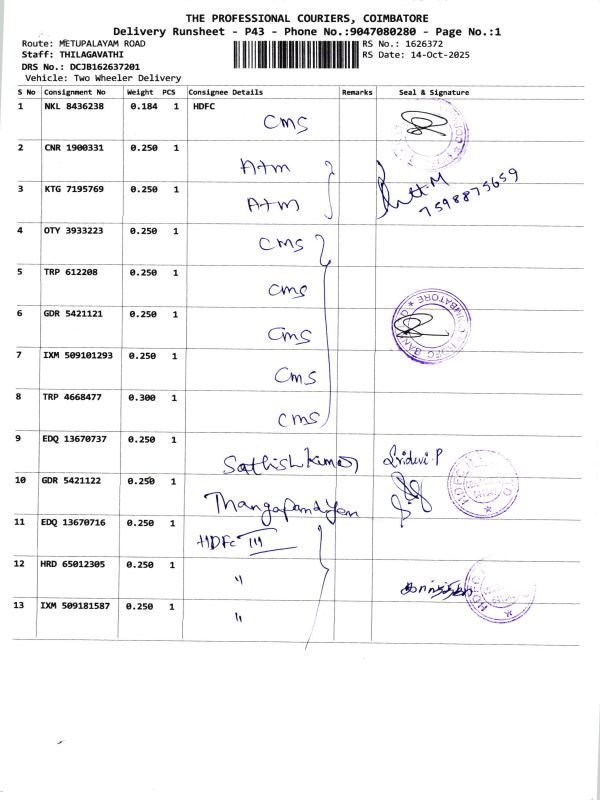 THE PROFESSIONAL COURIERS, COIMBATORE
Delivery Runsheet - P43 - Phone No.:9047080280 - Page No.:1
Route: METUPALAYAM ROAD RS No.: 1626372
Staff: THILAGAVATHI RS Date: 14-Oct-2025
DRS No.: DCJB162637201
Vehicle: Two Wheeler Delivery
S No Consignment No Weight PCS Consignee Details Remarks Seal & Signature
1 NKL 8436238 0.184 1 HDFC
CMS
2 CNR 1900331 0.250 1
Atm
3 KTG 7195769 0.250 1
Atm 7598875659
4 OTY 3933223 0.250 1
CMS
5 TRP 612208 0.250 1
CMS
6 GDR 5421121 0.250 1
CMS
7 IXM 509101293 0.250 1
CMS
8 TRP 4668477 0.300 1
CMS
9 EDQ 13670737 0.250 1
Sathish Kumar Sridevi.P
10 GDR 5421122 0.250 1
Thangapandiyan
11 EDQ 13670716 0.250 1
HDFC
12 HRD 65012305 0.250 1
"
13 IXM 509181587 0.250 1
"